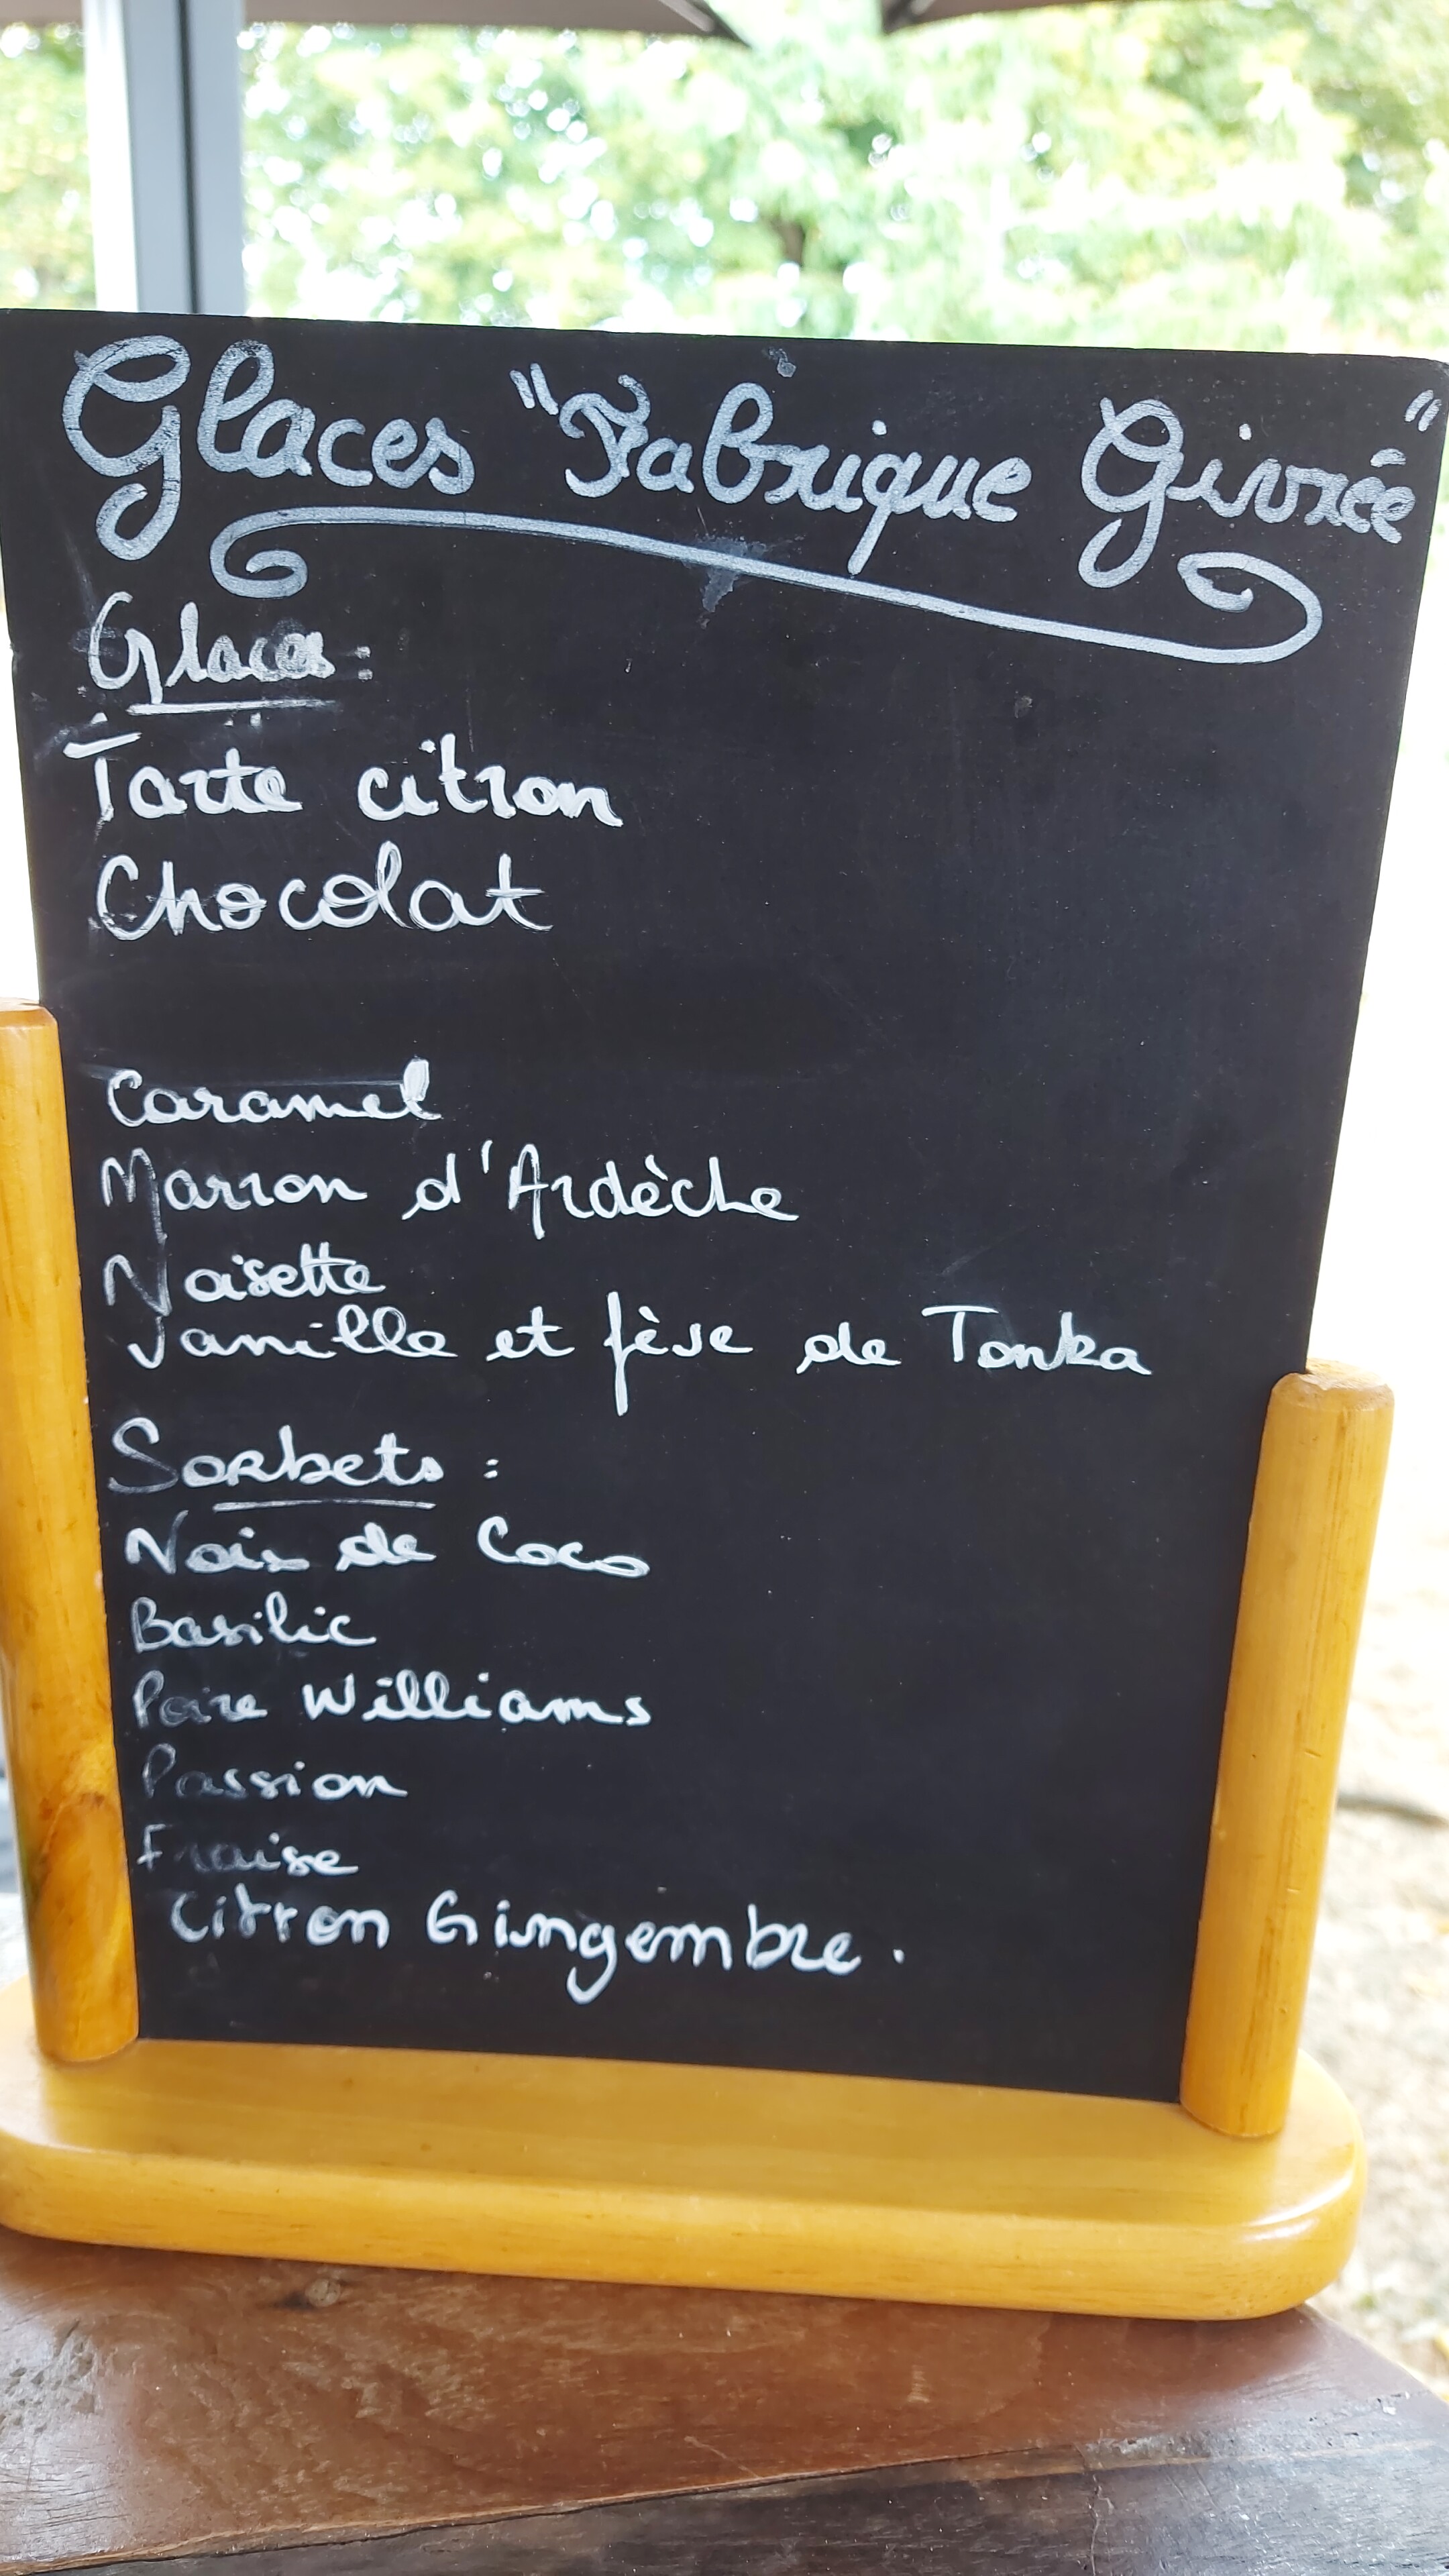 Glaces "Fabrique Givrée"
Glaces :
Tarte citron
Chocolat
Caramel
Marron d'Ardèche
Noisette
Vanille et fève de Tonka
Sorbets :
Noix de Coco
Basilic
Poire Williams
Passion
Fraise
Citron Gingembre.